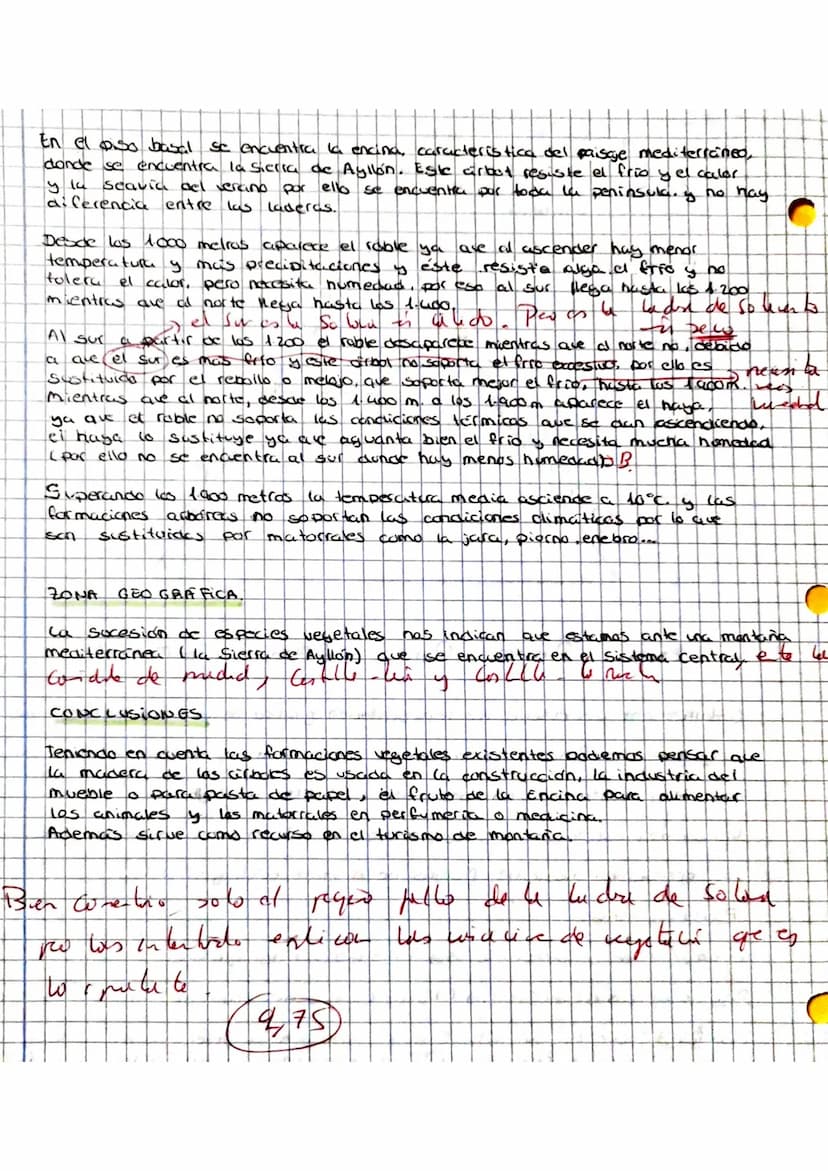 En el piso basal se encuentra la encina, característica del paisge mediterráneo,
donde se encuentra la sierra de Ayllón. Este árbol resiste el frío y el calor
y la sequía del verano por ello se encuentra por toda la península. y no hay
diferencia entre las laderas.
Desde los 1000 metros aparece el roble ya que al ascender hay menor
temperatura y más precipitaciones y éste resiste algo el frío y no
tolera el calor, pero necesita humedad, por eso al sur llega hasta los 1.200
mientras que al norte llega hasta los 1.400.
el sur es la Solana es cálido. Pero es la ladera de Solvento
es seco
Al sur a partir de los 1200 el roble desaparece mientras que al norte no, debido
a que el sur es más frío y este árbol no soporta el frío excesivo, por ello es
necesita
sustituido por el rebollo o melojo, que soporta mejor el frío, hasta los 1.900m.
humedad
mientras que al norte, desde los 1.400 m. a los 1.900m aparece el haya,
ya que el roble no soporta las condiciones térmicas que se dan ascendiendo,
el haya lo sustituye ya que aguanta bien el frío y necesita mucha homedad
(por ello no se encuentra al sur donde hay menos humedad) B
Superando los 1900 metros la temperatura media asciende a 10ºc. y las
formaciones arbóreas no soportan las condiciones climáticas por lo que
son sustituidas por matorrales como la jara, piorno, enebro...
ZONA GEOGRÁFICA.
La sucesión de especies vegetales nos indican que estamos ante una montaña
mediterránea (la Sierra de Ayllón) que se encuentra en el sistema central, entre la
Comunidad de Madrid, Castilla-León y Castilla-la Mancha
CONCLUSIONES
Teniendo en cuenta las formaciones vegetales existentes podemos pensar que
la madera de los árboles es usada en la construcción, la industria del
mueble o para pasta de papel, el fruto de la Encina para alimentar
los animales y los matorrales en perfumería o medicina.
Además sirve como recurso en el turismo de montaña.
Bien solo el pequeño fallo de la ladera de Solana
pero has intentado explicar las de vegetación que es
lo importante.
9,75